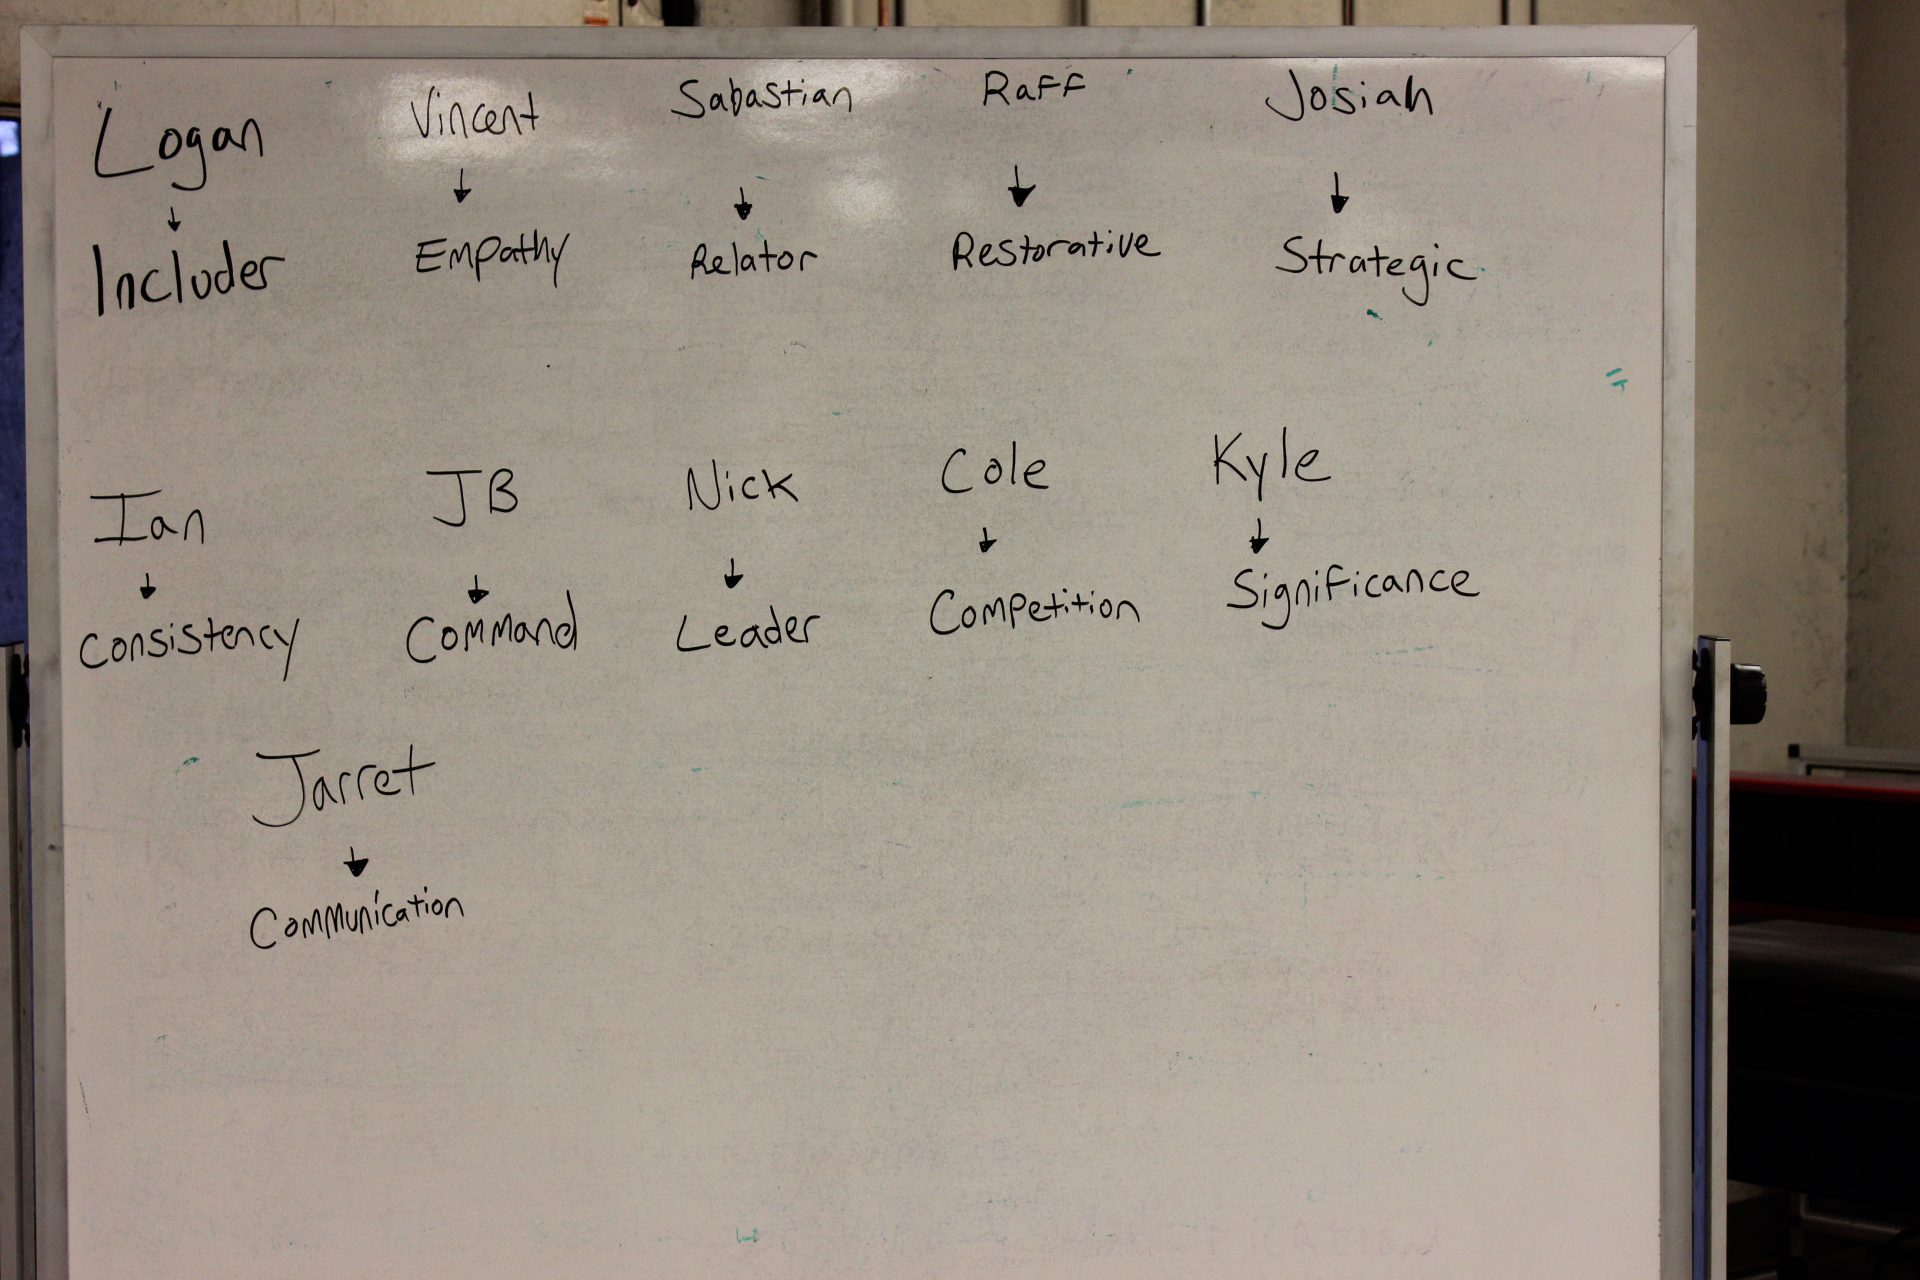 Logan Vincent Sabastian Raff Josiah
↓ ↓ ↓ ↓ ↓
Includer Empathy Relator Restorative Strategic
Ian JB Nick Cole Kyle
↓ ↓ ↓ ↓ ↓
Consistency Command Leader Competition Significance
Jarret
↓
Communication